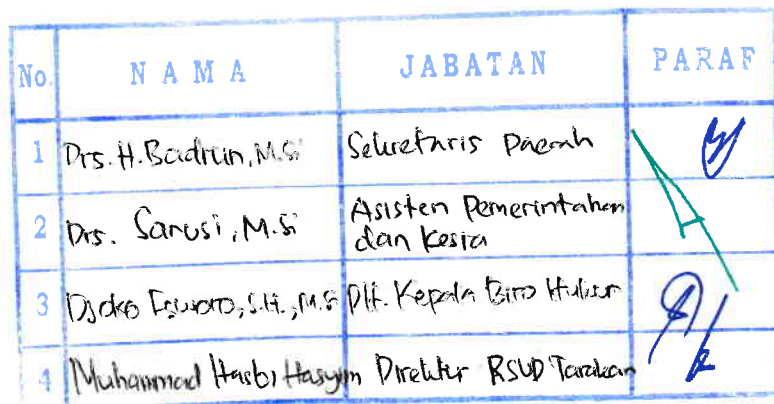 No. N A M A JABATAN PARAF
1 Drs. H. Badrun, M.Si Sekretaris Daerah
2 Drs. Sanusi, M.Si Asisten Pemerintahan
dan Kesra
3 Djoko Isworo, S.H., M.Si Plt. Kepala Biro Hukum
4 Muhammad Hasbi Hasyim Direktur RSUD Tarakan